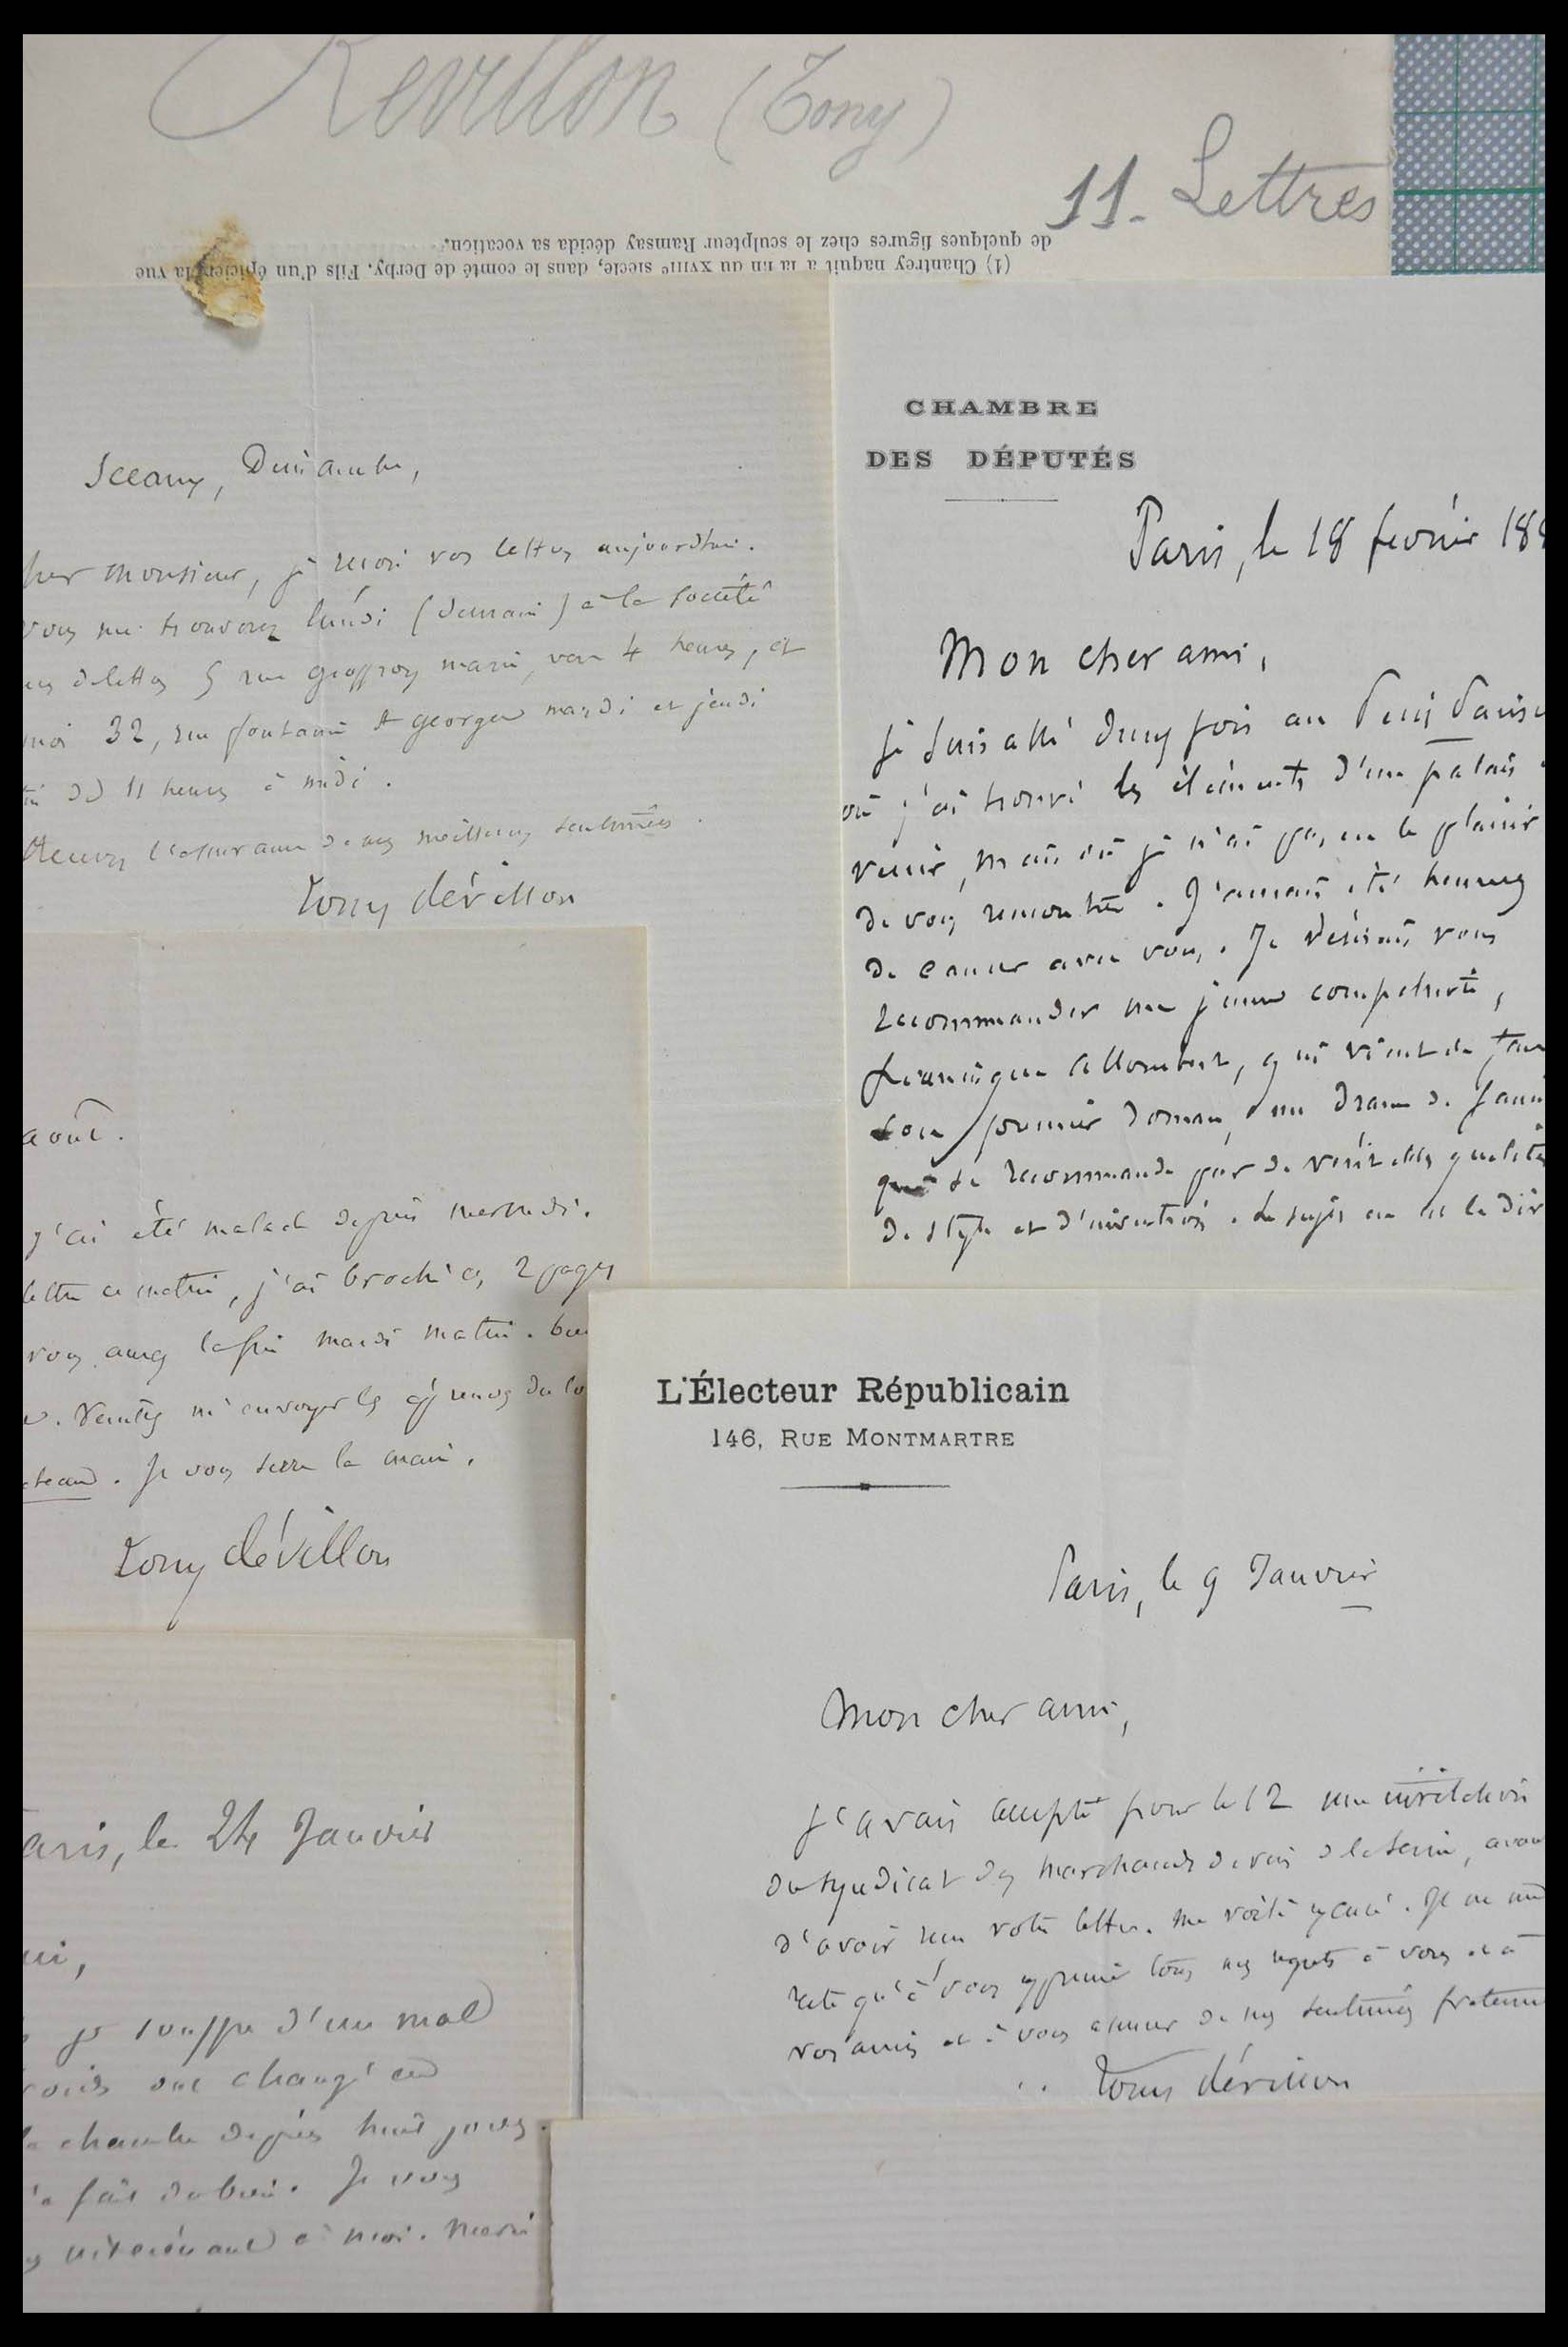 Révillon (Tony)
11 - Lettres
de quelques figures chez le sculpteur Ramsay décida sa vocation.
(1) Chantrey naquit à la fin du XVIIIe siècle, dans le comté de Derby. Fils d'un épicier, la vue
Sceaux, Dimanche,
cher monsieur, je reçois vos lettres aujourd'hui.
vous me trouverez lundi (demain) à la société
des gens de lettres 5 rue geoffroy marie, vers 4 heures, et
moi 32, rue fontaine St georges mardi et jeudi
de 11 heures à midi.
Recevez l'assurance de mes meilleurs sentiments.
Tony Révillon
CHAMBRE
DES DÉPUTÉS
Paris, le 18 février 188
Mon cher ami,
je suis allé deux fois au Petit Parisien
où j'ai trouvé les éléments d'un palais
venir, mais où je n'ai pas eu le plaisir
de vous rencontrer. J'aurais été heureux
de causer avec vous. Je désirais vous
recommander un jeune compatriote,
francisque Allombert, qui vient de faire
son premier roman, un drame de
qui se recommande par de véritables qualités
de style et d'invention. Le sujet
août.
j'ai été malade depuis mercredi.
lettre ce matin, j'ai broché ces 2 pages
vous aurez la fin mardi matin.
Veuillez m'envoyer les épreuves du
Je vous serre la main.
Tony Révillon
L'Électeur Républicain
146, RUE MONTMARTRE
Paris, le 9 Janvier
Mon cher ami,
j'avais accepté pour le 12 une invitation
du syndicat des marchands de vins de la Seine, avant
d'avoir reçu votre lettre. me voilà excusé. Il ne me
reste qu'à vous exprimer tous mes regrets à vous et à
vos amis et à vous assurer de mes sentiments fraternels
Tony Révillon
Paris, le 24 Janvier
ami,
je souffre d'un mal
changé en
la chambre depuis huit jours.
fait du bien. Je vous
à moi. merci